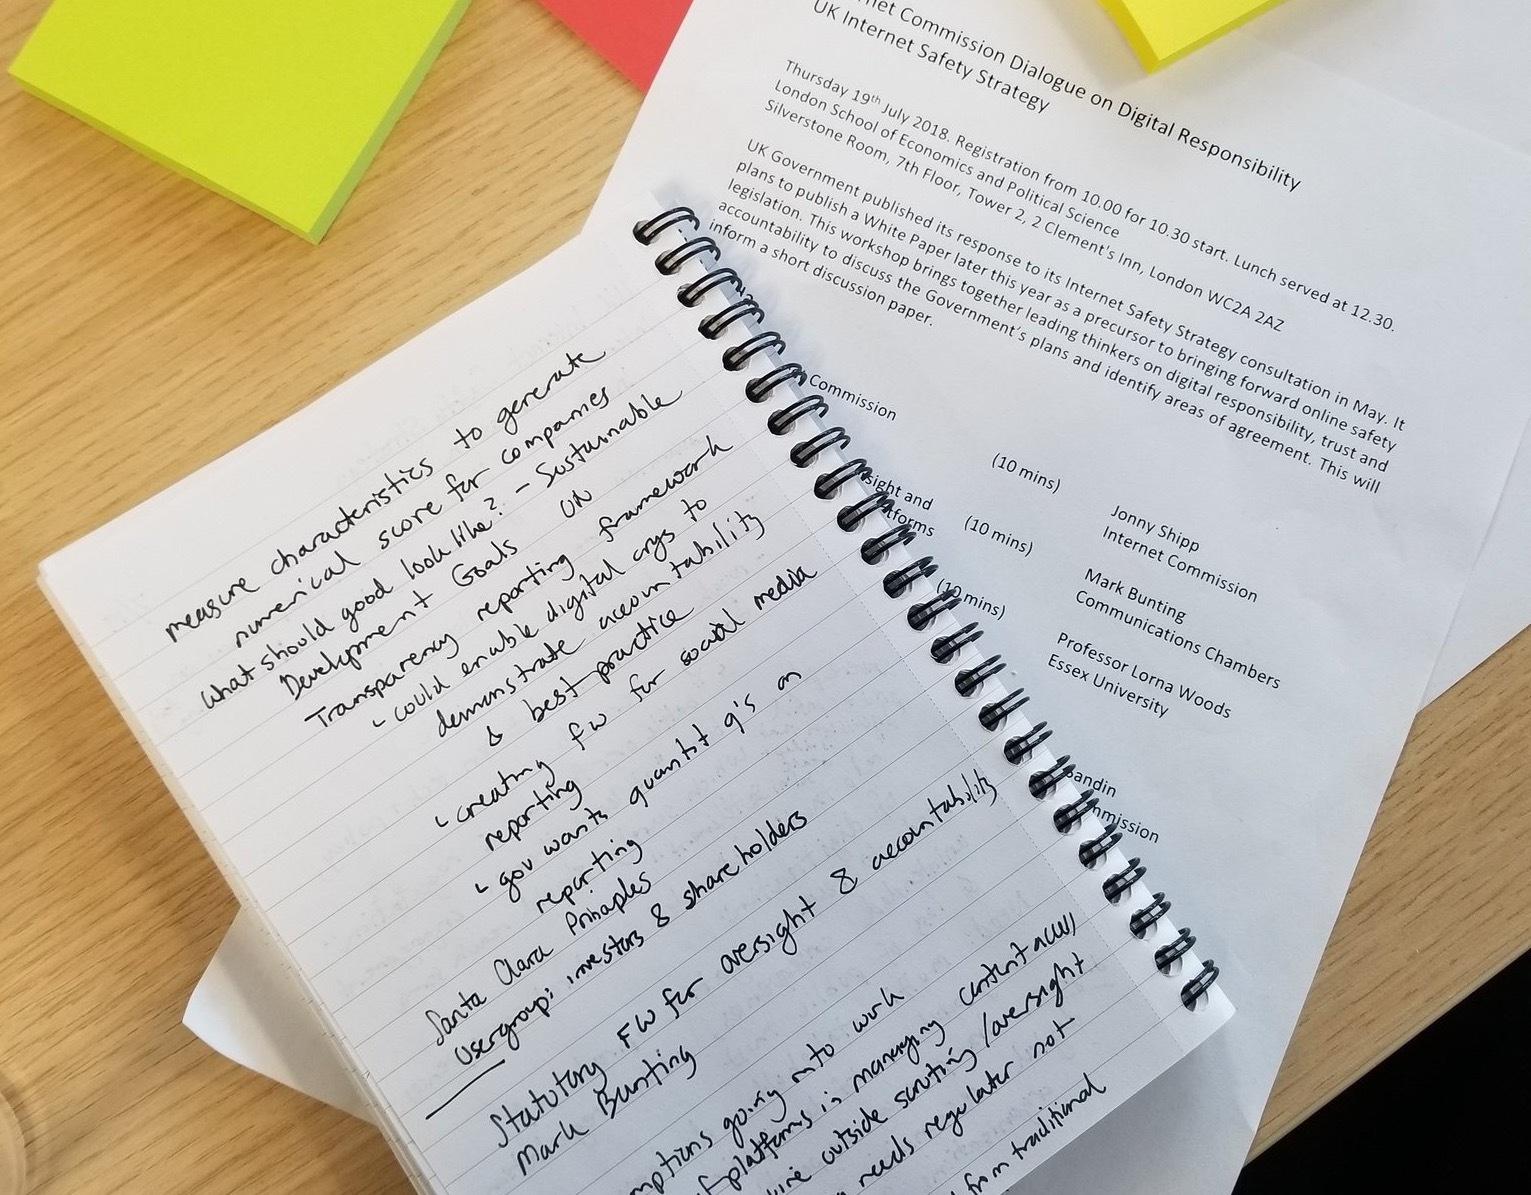 net Commission Dialogue on Digital Responsibility
UK Internet Safety Strategy
Thursday 19th July 2018. Registration from 10.00 for 10.30 start. Lunch served at 12.30.
London School of Economics and Political Science
Silverstone Room, 7th Floor, Tower 2, 2 Clement's Inn, London WC2A 2AZ
UK Government published its response to its Internet Safety Strategy consultation in May. It
plans to publish a White Paper later this year as a precursor to bringing forward online safety
legislation. This workshop brings together leading thinkers on digital responsibility, trust and
accountability to discuss the Government's plans and identify areas of agreement. This will
inform a short discussion paper.
Commission
(10 mins)
Jonny Shipp
Internet Commission
sight and
tforms
(10 mins)
Mark Bunting
Communications Chambers
(10 mins)
Professor Lorna Woods
Essex University
andin
mmission
measure characteristics to generate
numerical score for companies
what should good look like? - Sustainable
Development Goals UN
Transparency reporting framework
could enable digital orgs to
demonstrate accountability
& best practice
creating fw for social media
reporting
gov wants quantit q's on
reporting
Santa Clara Principles
Usergroup: investors & shareholders
Statutory FW for oversight & accountability
Mark Bunting
mptions going into work
platforms is managing content
outside scrutiny/oversight
needs regulator not
from traditional